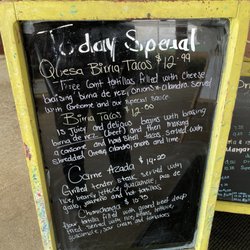 Today Special
Quesa Birria Tacos $12.99
Three Corn tortillas filled with cheese
birria de res, onions cilantro served
with consome and our special sauce
Birria Tacos $12.00
is Juicy and delicious beans with
birria de res (beef) and then
consome and hard shell tacos served with
shredded Cheese, cilantro, onions and lime
Carne Azada $14.20
Grilled tender steak served with
rice, lettuce, guacamole, pico de
gallo, jalapeño and hot tortillas
Chimichanga $10.95
flour tortilla with ground beef deep
fried served with rice, beans, lettuce
guacamole, sour cream and tomatoes